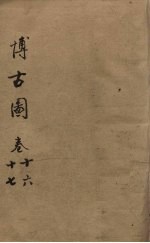 博古圖 卷十六
十七